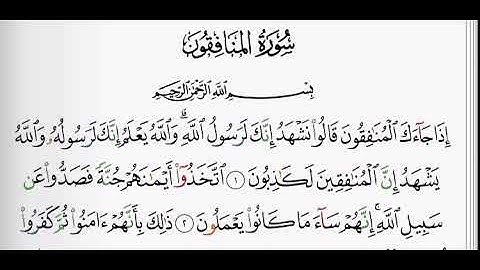 سُورَةُ المُنَافِقُونَ
بِسْمِ اللَّهِ الرَّحْمَٰنِ الرَّحِيمِ
إِذَا جَآءَكَ ٱلْمُنَٰفِقُونَ قَالُوا۟ نَشْهَدُ إِنَّكَ لَرَسُولُ ٱللَّهِ ۗ وَٱللَّهُ يَعْلَمُ إِنَّكَ لَرَسُولُهُۥ وَٱللَّهُ
يَشْهَدُ إِنَّ ٱلْمُنَٰفِقِينَ لَكَٰذِبُونَ ١ ٱتَّخَذُوٓا۟ أَيْمَٰنَهُمْ جُنَّةً فَصَدُّوا۟ عَن
سَبِيلِ ٱللَّهِ ۚ إِنَّهُمْ سَآءَ مَا كَانُوا۟ يَعْمَلُونَ ٢ ذَٰلِكَ بِأَنَّهُمْ ءَامَنُوا۟ ثُمَّ كَفَرُوا۟